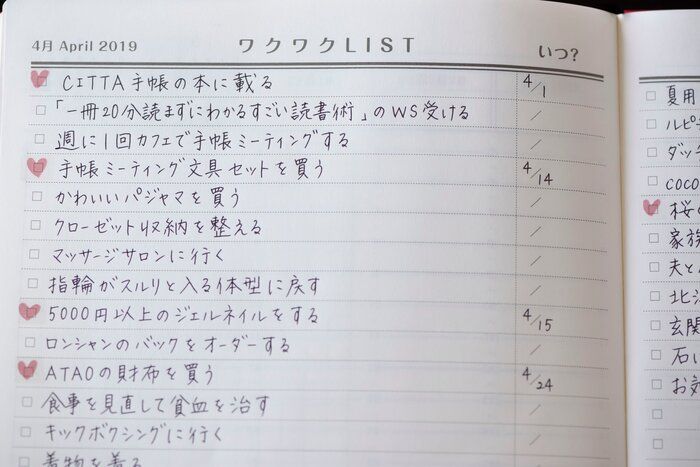 4月 April 2019 ワクワクLIST いつ?
CITTA手帳の本に載る 4/1
「一冊20分読まずにわかるすごい読書術」のWS受ける /
週に1回カフェで手帳ミーティングする /
手帳ミーティング文具セットを買う 4/14
かわいいパジャマを買う /
クローゼット収納を整える /
マッサージサロンに行く /
指輪がスルリと入る体型に戻す /
5000円以上のジェルネイルをする 4/15
ロンシャンのバックをオーダーする /
ATAOの財布を買う 4/24
食事を見直して貧血を治す /
キックボクシングに行く /
着物を着る
夏用
ルピシ
ダッ
COCO
桜の
家族
夫と
北海
玄関
石に
お気